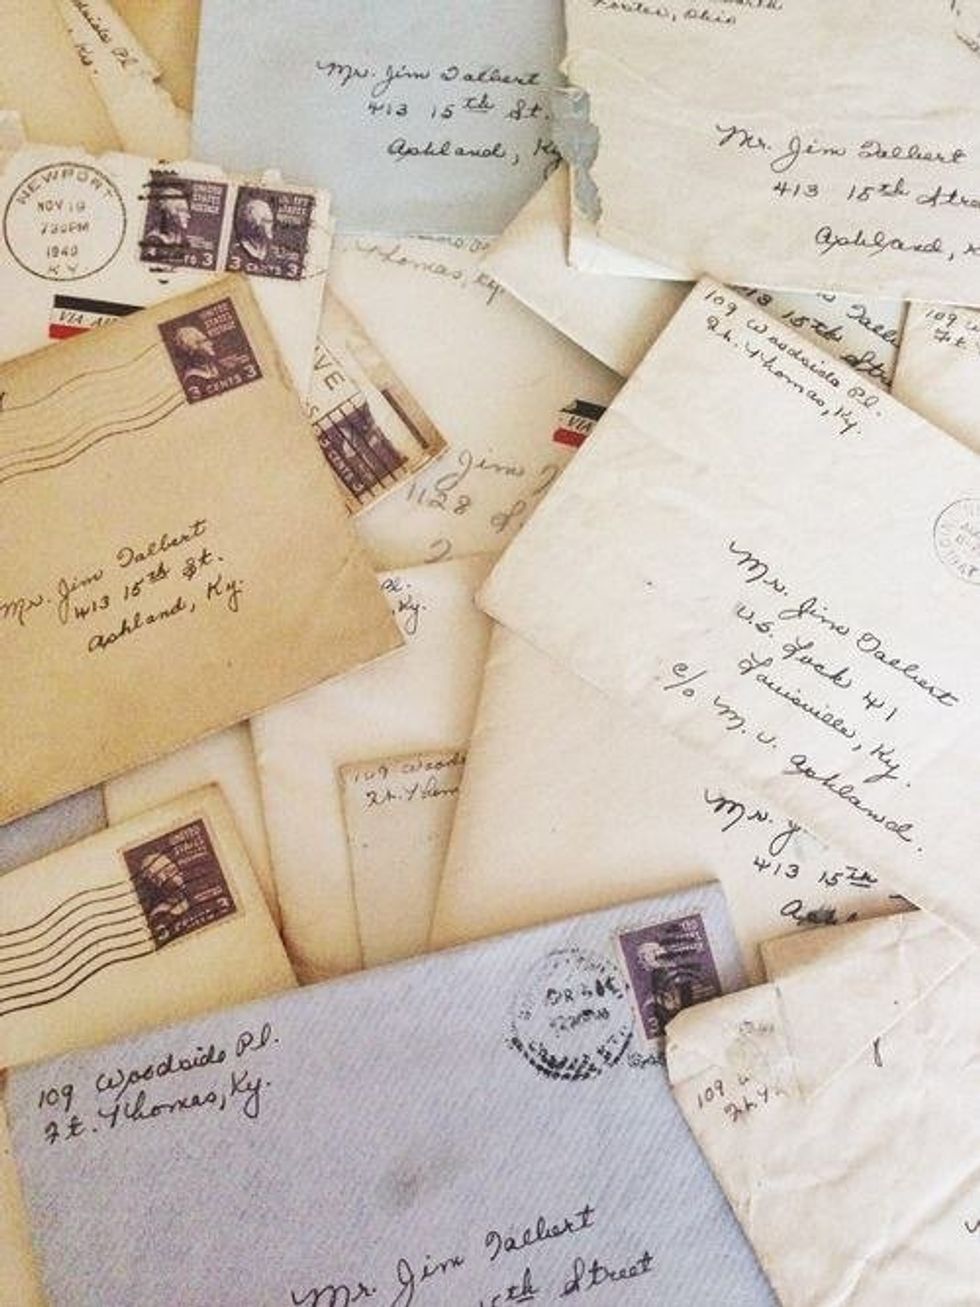 Woodside Pl.
Ky.
Mr. Jim Talbert
413 15th St.
Ashland, Ky
Ohio
Mr. Jim Talbert
413 15th Stre
Ashland, K
NEWPORT
NOV 19
7 30 PM
1940
KY.
UNITED STATES POSTAGE
3 CENTS 3
VIA AIR
Thomas, Ky
13 15th Str
109
Ft.
109 Woodside Pl.
Ft. Thomas, Ky.
UNITED STATES POSTAGE
3 CENTS 3
VE
CENTS 3
VIA
Jim T
1128 S
Mr. Jim Talbert
413 15th St.
Ashland, Ky.
Pl.
, Ky.
Mr. Jim Talbert
U.S. Lock 41
Louisville, Ky.
c/o M. V. Ashland.
109 Woods
Ft. Thom
Mr. J
413 15th
Ashl
UNITED STATES
3 CENTS 3
109 Woodside Pl.
Ft. Thomas, Ky.
109 W
Ft. Th
Mr. Jim Talbert
15th Street